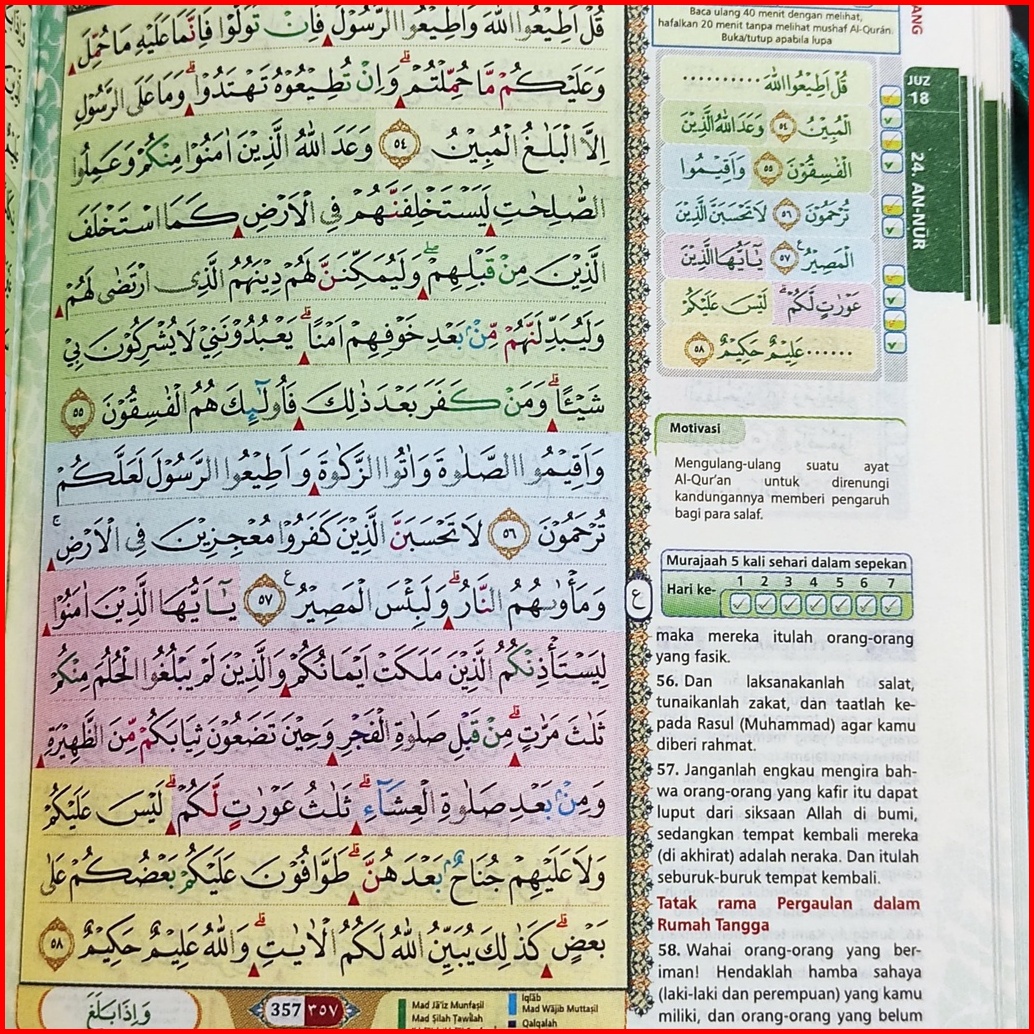 قُلْ اَطِيْعُوا اللّٰهَ وَاَطِيْعُوا الرَّسُوْلَ فَاِنْ تَوَلَّوْا فَاِنَّمَا عَلَيْهِ مَا حُمِّلَ
وَعَلَيْكُمْ مَّا حُمِّلْتُمْ ۗ وَاِنْ تُطِيْعُوْهُ تَهْتَدُوْا ۗ وَمَا عَلَى الرَّسُوْلِ
اِلَّا الْبَلٰغُ الْمُبِيْنُ ٥٤ وَعَدَ اللّٰهُ الَّذِيْنَ اٰمَنُوْا مِنْكُمْ وَعَمِلُوا
الصّٰلِحٰتِ لَيَسْتَخْلِفَنَّهُمْ فِى الْاَرْضِ كَمَا اسْتَخْلَفَ
الَّذِيْنَ مِنْ قَبْلِهِمْ ۖ وَلَيُمَكِّنَنَّ لَهُمْ دِيْنَهُمُ الَّذِى ارْتَضٰى لَهُمْ
وَلَيُبَدِّلَنَّهُمْ مِّنْۢ بَعْدِ خَوْفِهِمْ اَمْنًا ۗ يَعْبُدُوْنَنِيْ لَا يُشْرِكُوْنَ بِيْ
شَيْـًٔا ۗ وَمَنْ كَفَرَ بَعْدَ ذٰلِكَ فَاُولٰۤىِٕكَ هُمُ الْفٰسِقُوْنَ ٥٥
وَاَقِيْمُوا الصَّلٰوةَ وَاٰتُوا الزَّكٰوةَ وَاَطِيْعُوا الرَّسُوْلَ لَعَلَّكُمْ
تُرْحَمُوْنَ ٥٦ لَا تَحْسَبَنَّ الَّذِيْنَ كَفَرُوْا مُعْجِزِيْنَ فِى الْاَرْضِ ۚ
وَمَأْوٰىهُمُ النَّارُ ۗ وَلَبِئْسَ الْمَصِيْرُ ࣖ ٥٧ يٰٓاَيُّهَا الَّذِيْنَ اٰمَنُوْا
لِيَسْتَأْذِنْكُمُ الَّذِيْنَ مَلَكَتْ اَيْمَانُكُمْ وَالَّذِيْنَ لَمْ يَبْلُغُوا الْحُلُمَ مِنْكُمْ
ثَلٰثَ مَرّٰتٍ ۗ مِنْ قَبْلِ صَلٰوةِ الْفَجْرِ وَحِيْنَ تَضَعُوْنَ ثِيَابَكُمْ مِّنَ الظَّهِيْرَةِ
وَمِنْۢ بَعْدِ صَلٰوةِ الْعِشَاۤءِ ۗ ثَلٰثُ عَوْرٰتٍ لَّكُمْ ۗ لَيْسَ عَلَيْكُمْ
وَلَا عَلَيْهِمْ جُنَاحٌۢ بَعْدَهُنَّ ۗ طَوَّافُوْنَ عَلَيْكُمْ بَعْضُكُمْ عَلٰى
بَعْضٍ ۗ كَذٰلِكَ يُبَيِّنُ اللّٰهُ لَكُمُ الْاٰيٰتِ ۗ وَاللّٰهُ عَلِيْمٌ حَكِيْمٌ ٥٨
وَاِذَا بَلَغَ
357 ٣٥٧
Mad Jā'iz Munfaṣil
Mad Ṣilah Ṭawīlah
Iqlāb
Mad Wājib Muttaṣil
Qalqalah
ع
Baca ulang 40 menit dengan melihat,
hafalkan 20 menit tanpa melihat mushaf Al-Qurán.
Buka/tutup apabila lupa
قُلْ اَطِيْعُوا اللّٰهَ ..........
الْمُبِيْنُ ٥٤ وَعَدَ اللّٰهُ الَّذِيْنَ
الْفٰسِقُوْنَ ٥٥ وَاَقِيْمُوا
تُرْحَمُوْنَ ٥٦ لَا تَحْسَبَنَّ الَّذِيْنَ
الْمَصِيْرُ ࣖ ٥٧ يٰٓاَيُّهَا الَّذِيْنَ
عَوْرٰتٍ لَّكُمْ ۗ لَيْسَ عَلَيْكُمْ
...... عَلِيْمٌ حَكِيْمٌ ٥٨
ANG
JUZ
18
24. AN-NŪR
Motivasi
Mengulang-ulang suatu ayat
Al-Qur'an untuk direnungi
kandungannya memberi pengaruh
bagi para salaf.
Murajaah 5 kali sehari dalam sepekan
Hari ke- 1 2 3 4 5 6 7
maka mereka itulah orang-orang
yang fasik.
56. Dan laksanakanlah salat,
tunaikanlah zakat, dan taatlah ke-
pada Rasul (Muhammad) agar kamu
diberi rahmat.
57. Janganlah engkau mengira bah-
wa orang-orang yang kafir itu dapat
luput dari siksaan Allah di bumi,
sedangkan tempat kembali mereka
(di akhirat) adalah neraka. Dan itulah
seburuk-buruk tempat kembali.
Tatak rama Pergaulan dalam
Rumah Tangga
58. Wahai orang-orang yang ber-
iman! Hendaklah hamba sahaya
(laki-laki dan perempuan) yang kamu
miliki, dan orang-orang yang belum